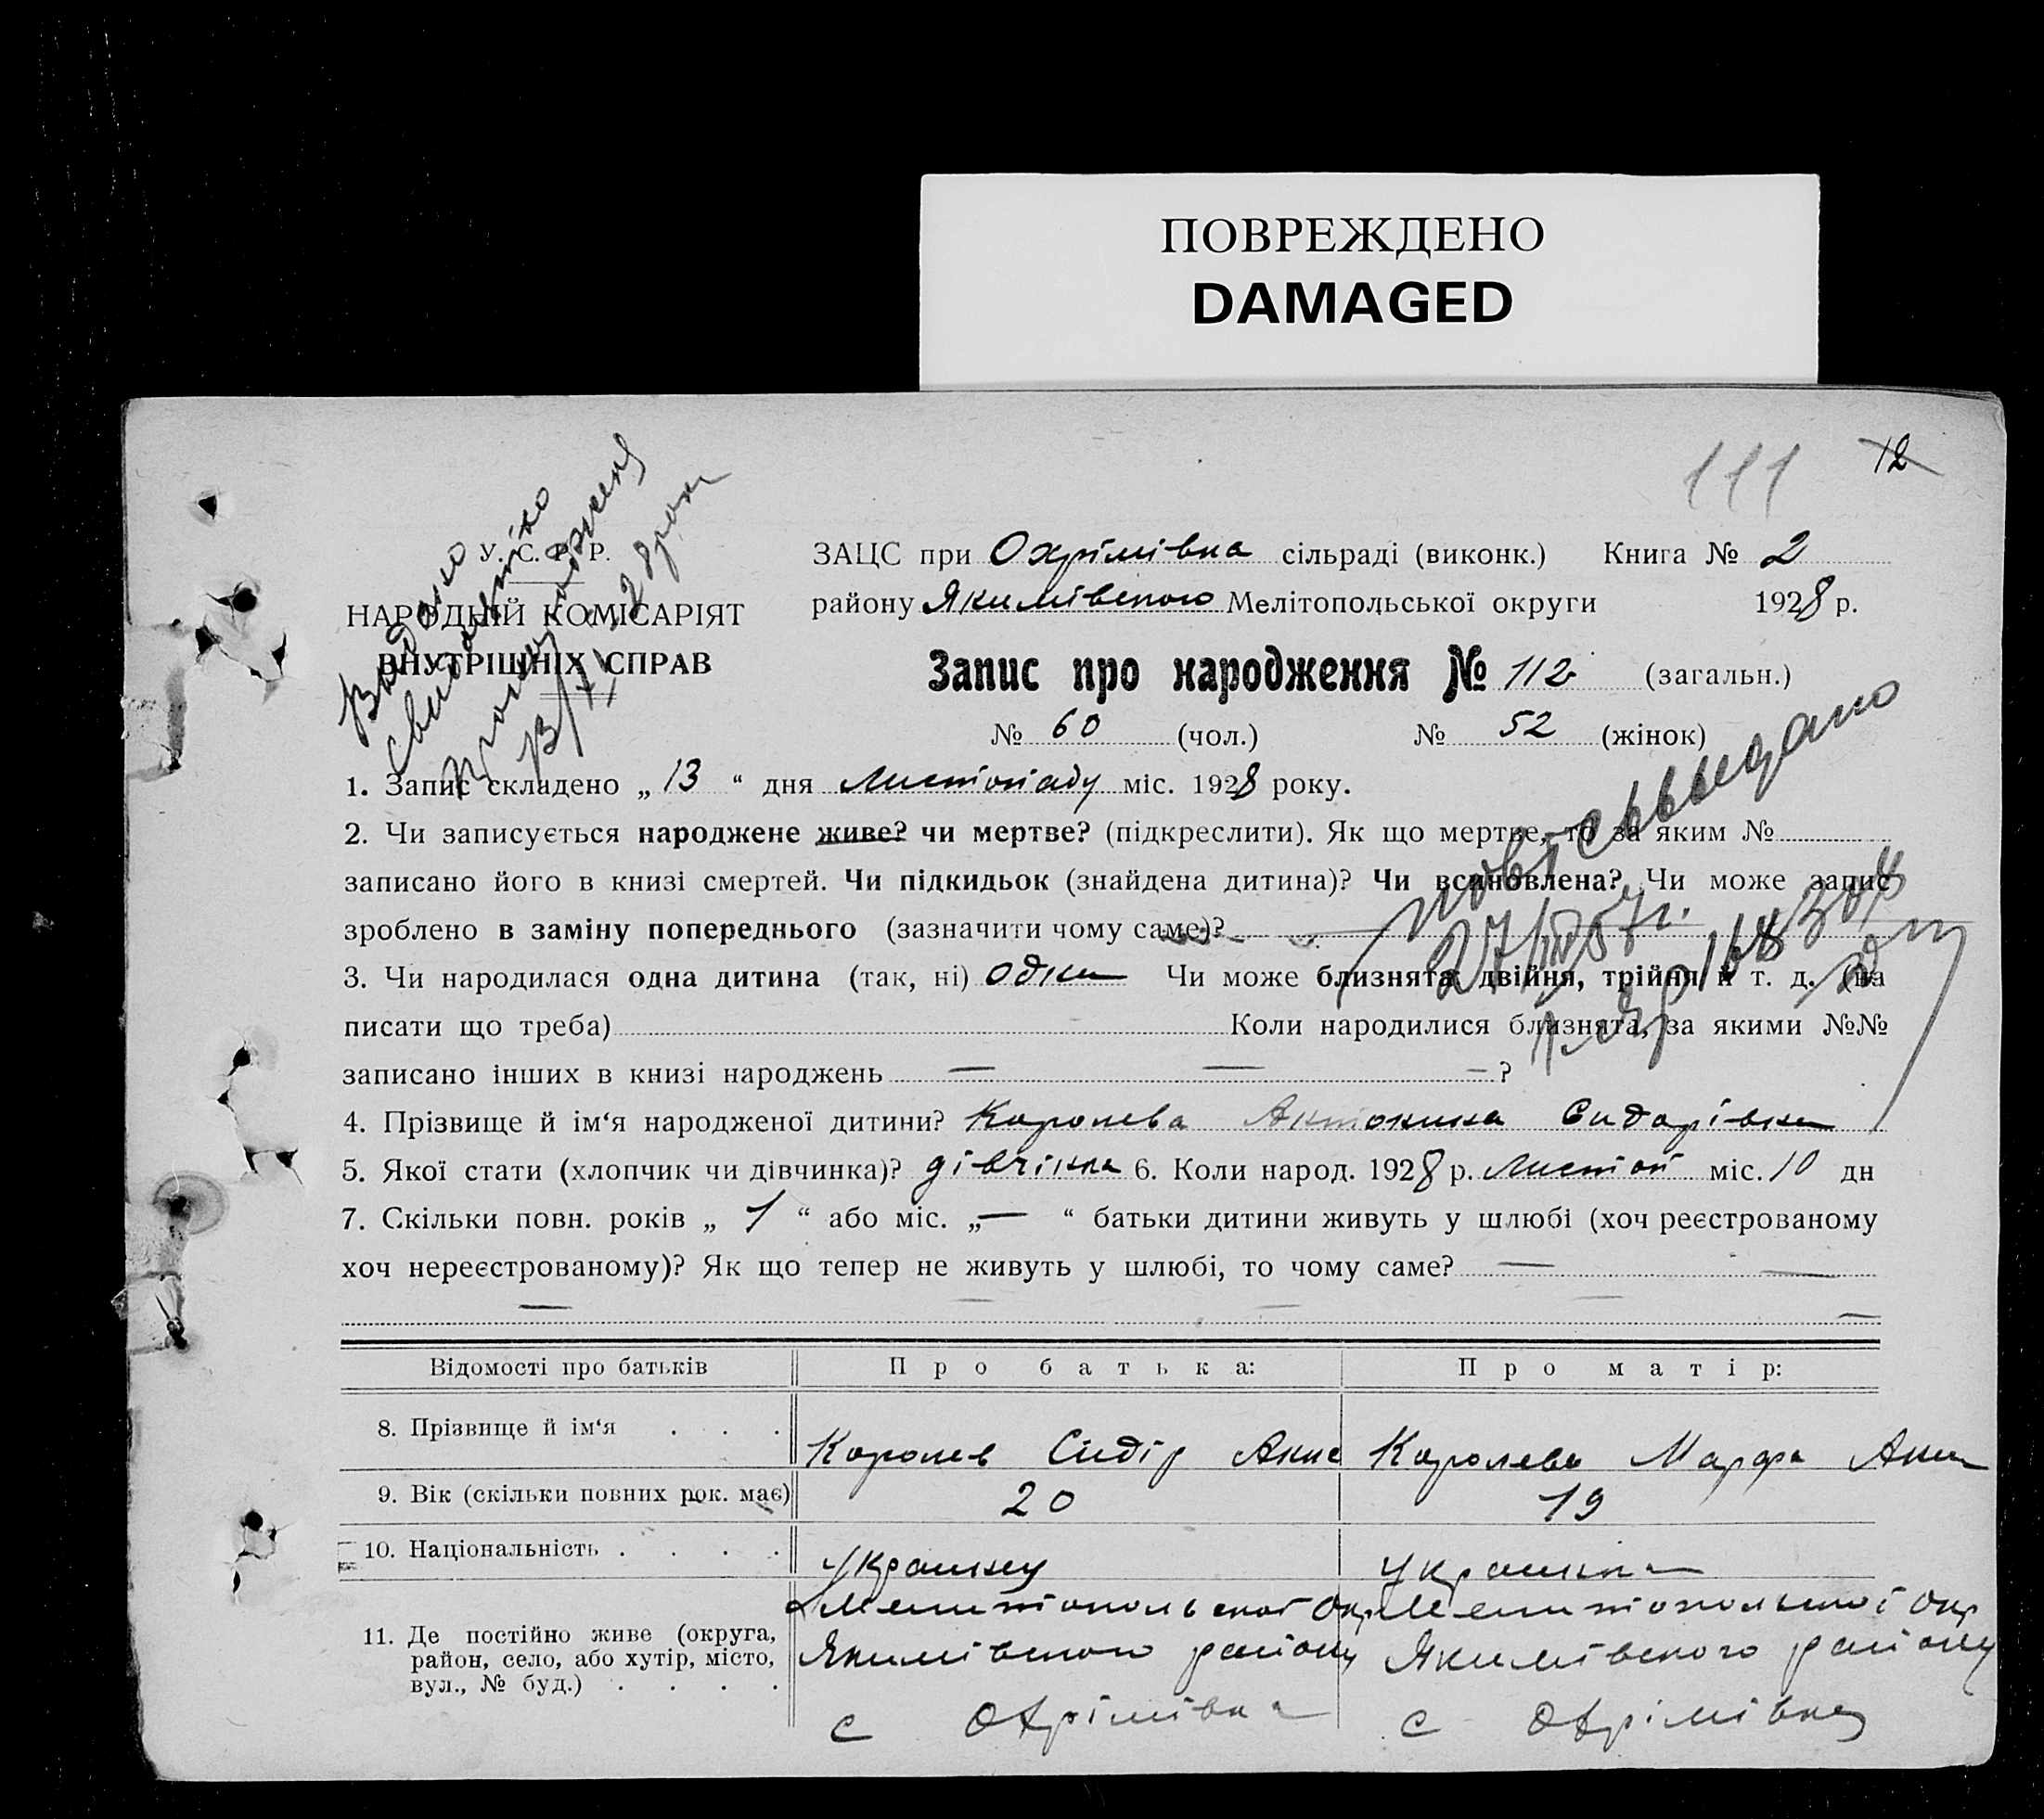 ПОВРЕЖДЕНО
DAMAGED
111
12
У. С. Р. Р.
НАРОДНІЙ КОМІСАРІЯТ
ВНУТРІШНІХ СПРАВ
Видано
свидоцтво
ЗАЦС при Охрімівка сільраді (виконк.) Книга № 2
району Якимівського Мелітопольської округи 1928 р.
Запис про народження № 112 (загальн.)
№ 60 (чол.) № 52 (жінок)
1. Запис складено „ 13 “ дня Листопаду міс. 1928 року.
2. Чи записується народжене живе? чи мертве? (підкреслити). Як що мертве, то за яким №
записано його в книзі смертей. Чи підкидьок (знайдена дитина)? Чи всиновлена? Чи може запис
зроблено в заміну попереднього (зазначити чому саме)?
3. Чи народилася одна дитина (так, ні) одна Чи може близнята, двійня, трійня й т. д. (на
писати що треба) Коли народилися близнята, за якими №№
записано інших в книзі народжень — — — ?
4. Прізвище й ім‘я народженої дитини? Королева Антонина Сидарівна
5. Якої стати (хлопчик чи дівчинка)? дівчінка 6. Коли народ. 1928 р. Листоп міс. 10 дн
7. Скільки повн. років „ 1 “ або міс. „ — “ батьки дитини живуть у шлюбі (хоч реєстрованому
хоч нереєстрованому)? Як що тепер не живуть у шлюбі, то чому саме? — —
Відомості про батьків Про батька: Про матір:
8. Прізвище й ім‘я . . . Королев Сидір Королева Марфа
9. Вік (скільки повних рок. має) 20 19
10. Національність . . . . Украинец Украинка
11. Де постійно живе (округа, район, село, або хутір, місто, вул., № буд.) . . . .
Мелитопольскої Окр Мелитопольскої Окр
Якимівского району Якимівского району
с Охрімівка с Охрімівка